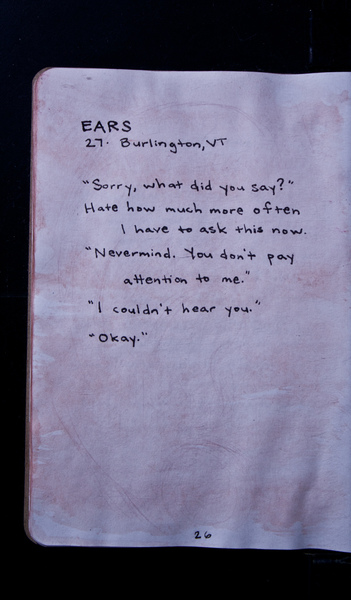 EARS
27. Burlington, VT
"Sorry, what did you say?"
Hate how much more often
I have to ask this now.
"Nevermind. You don't pay
attention to me."
"I couldn't hear you."
"Okay."
26